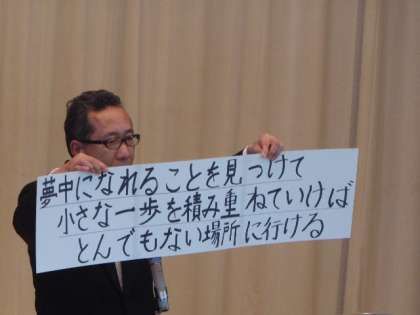 夢中になれることを見つけて
小さな一歩を積み重ねていけば
とんでもない場所に行ける